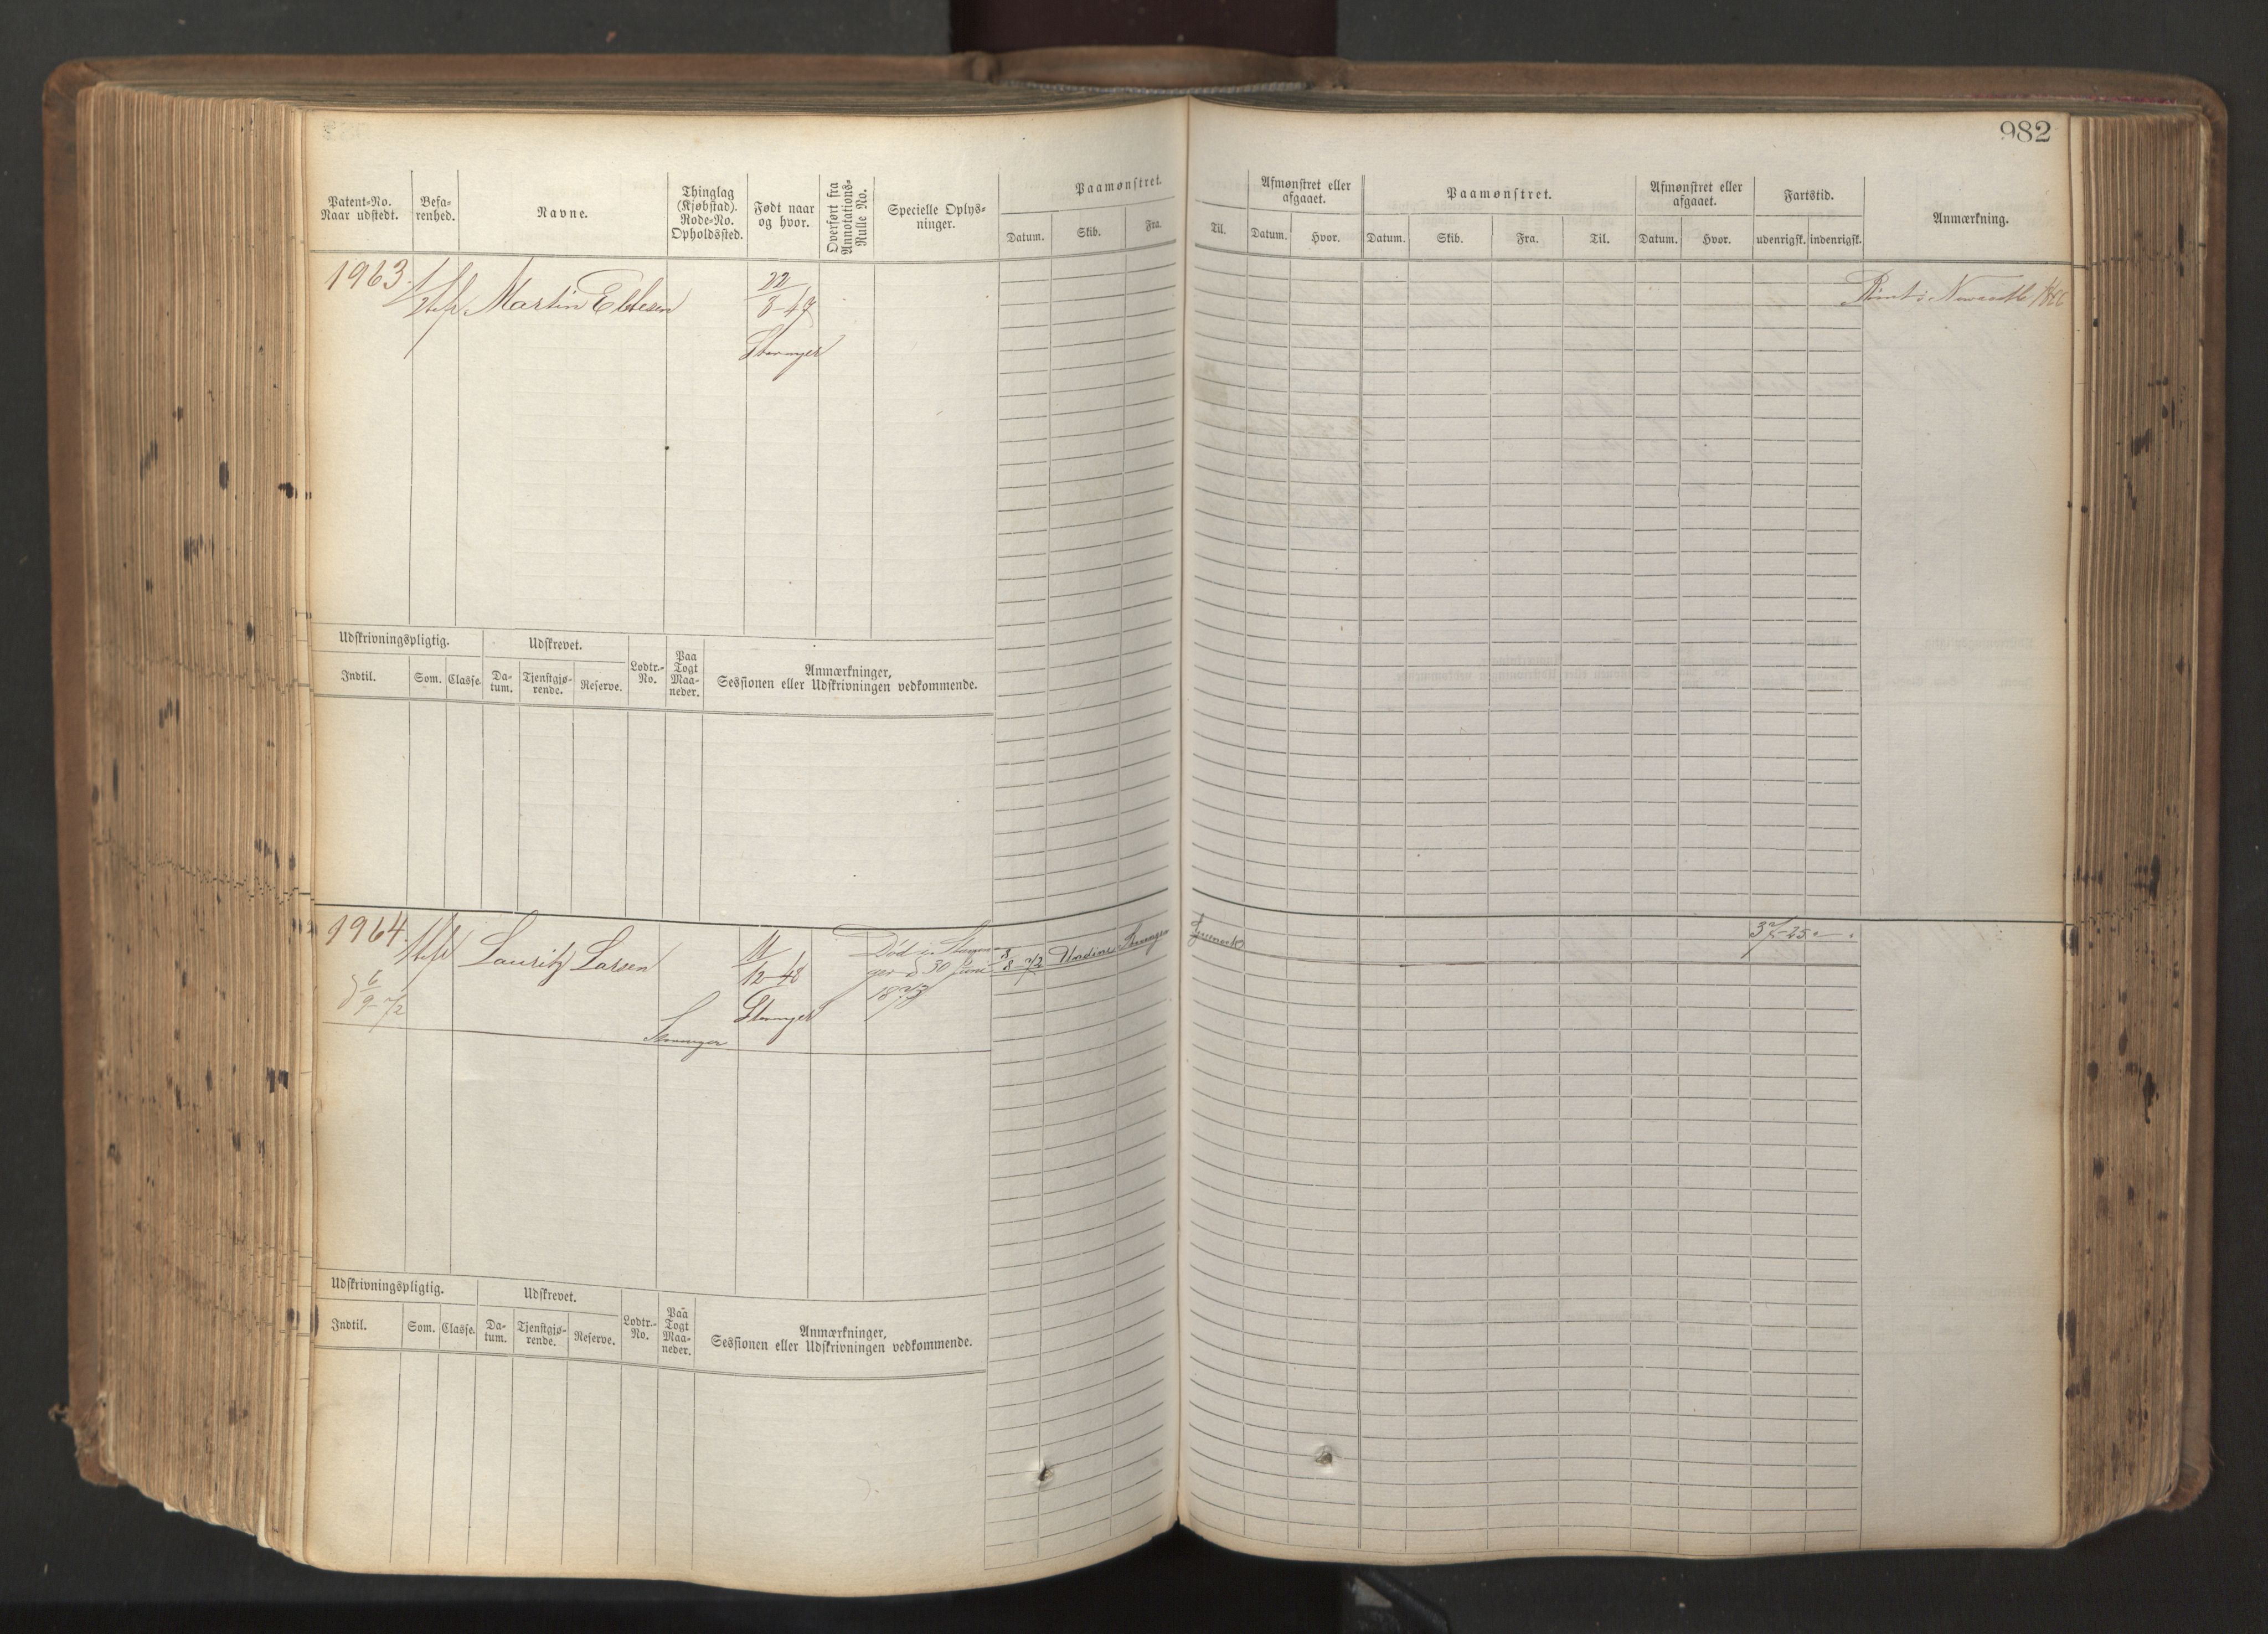 982
Patent-No.
Naar udstedt.
Befa-
renhed.
Navne.
Thinglag
(Kjøbstad).
Rode-No.
Opholdssted.
Født naar
og hvor.
Overført fra
Annotations-
Rulle No.
Specielle Oplys-
ninger.
Paamønstret.
Datum.
Skib.
Fra.
Til.
Afmønstret eller
afgaaet.
Datum.
Hvor.
Paamønstret.
Datum.
Skib.
Fra.
Til.
Afmønstret eller
afgaaet.
Datum.
Hvor.
Fartstid.
udenrigsk.
indenrigsk.
Anmærkning.
1963.
Martin
22
8-47
Stavanger
Rømt i Newcastle
Udskrivningspligtig.
Indtil.
Som.
Classe.
Udskrevet.
Da-
tum.
Tjenstgjø-
rende.
Reserve.
Lodtr.-
No.
Paa
Togt
Maa-
neder.
Anmærkninger,
Sessionen eller Udskrivningen vedkommende.
1964.
Lauritz Larsen
11
12-48
Stavanger
Død i Stavan-
ger d 30 Juni
1873
8
8-72
Undine
Stavanger
6
9-72
Stavanger
Udskrivningspligtig.
Indtil.
Som.
Classe.
Udskrevet.
Da-
tum.
Tjenstgjø-
rende.
Reserve.
Lodtr.-
No.
Paa
Togt
Maa-
neder.
Anmærkninger,
Sessionen eller Udskrivningen vedkommende.